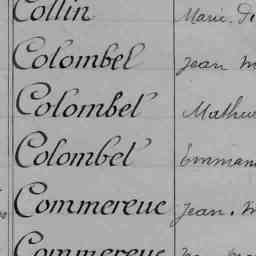 Collin Marie
Colombel Jean
Colombel Mathur
Colombel Emman
Commereuc Jean
Commereuc